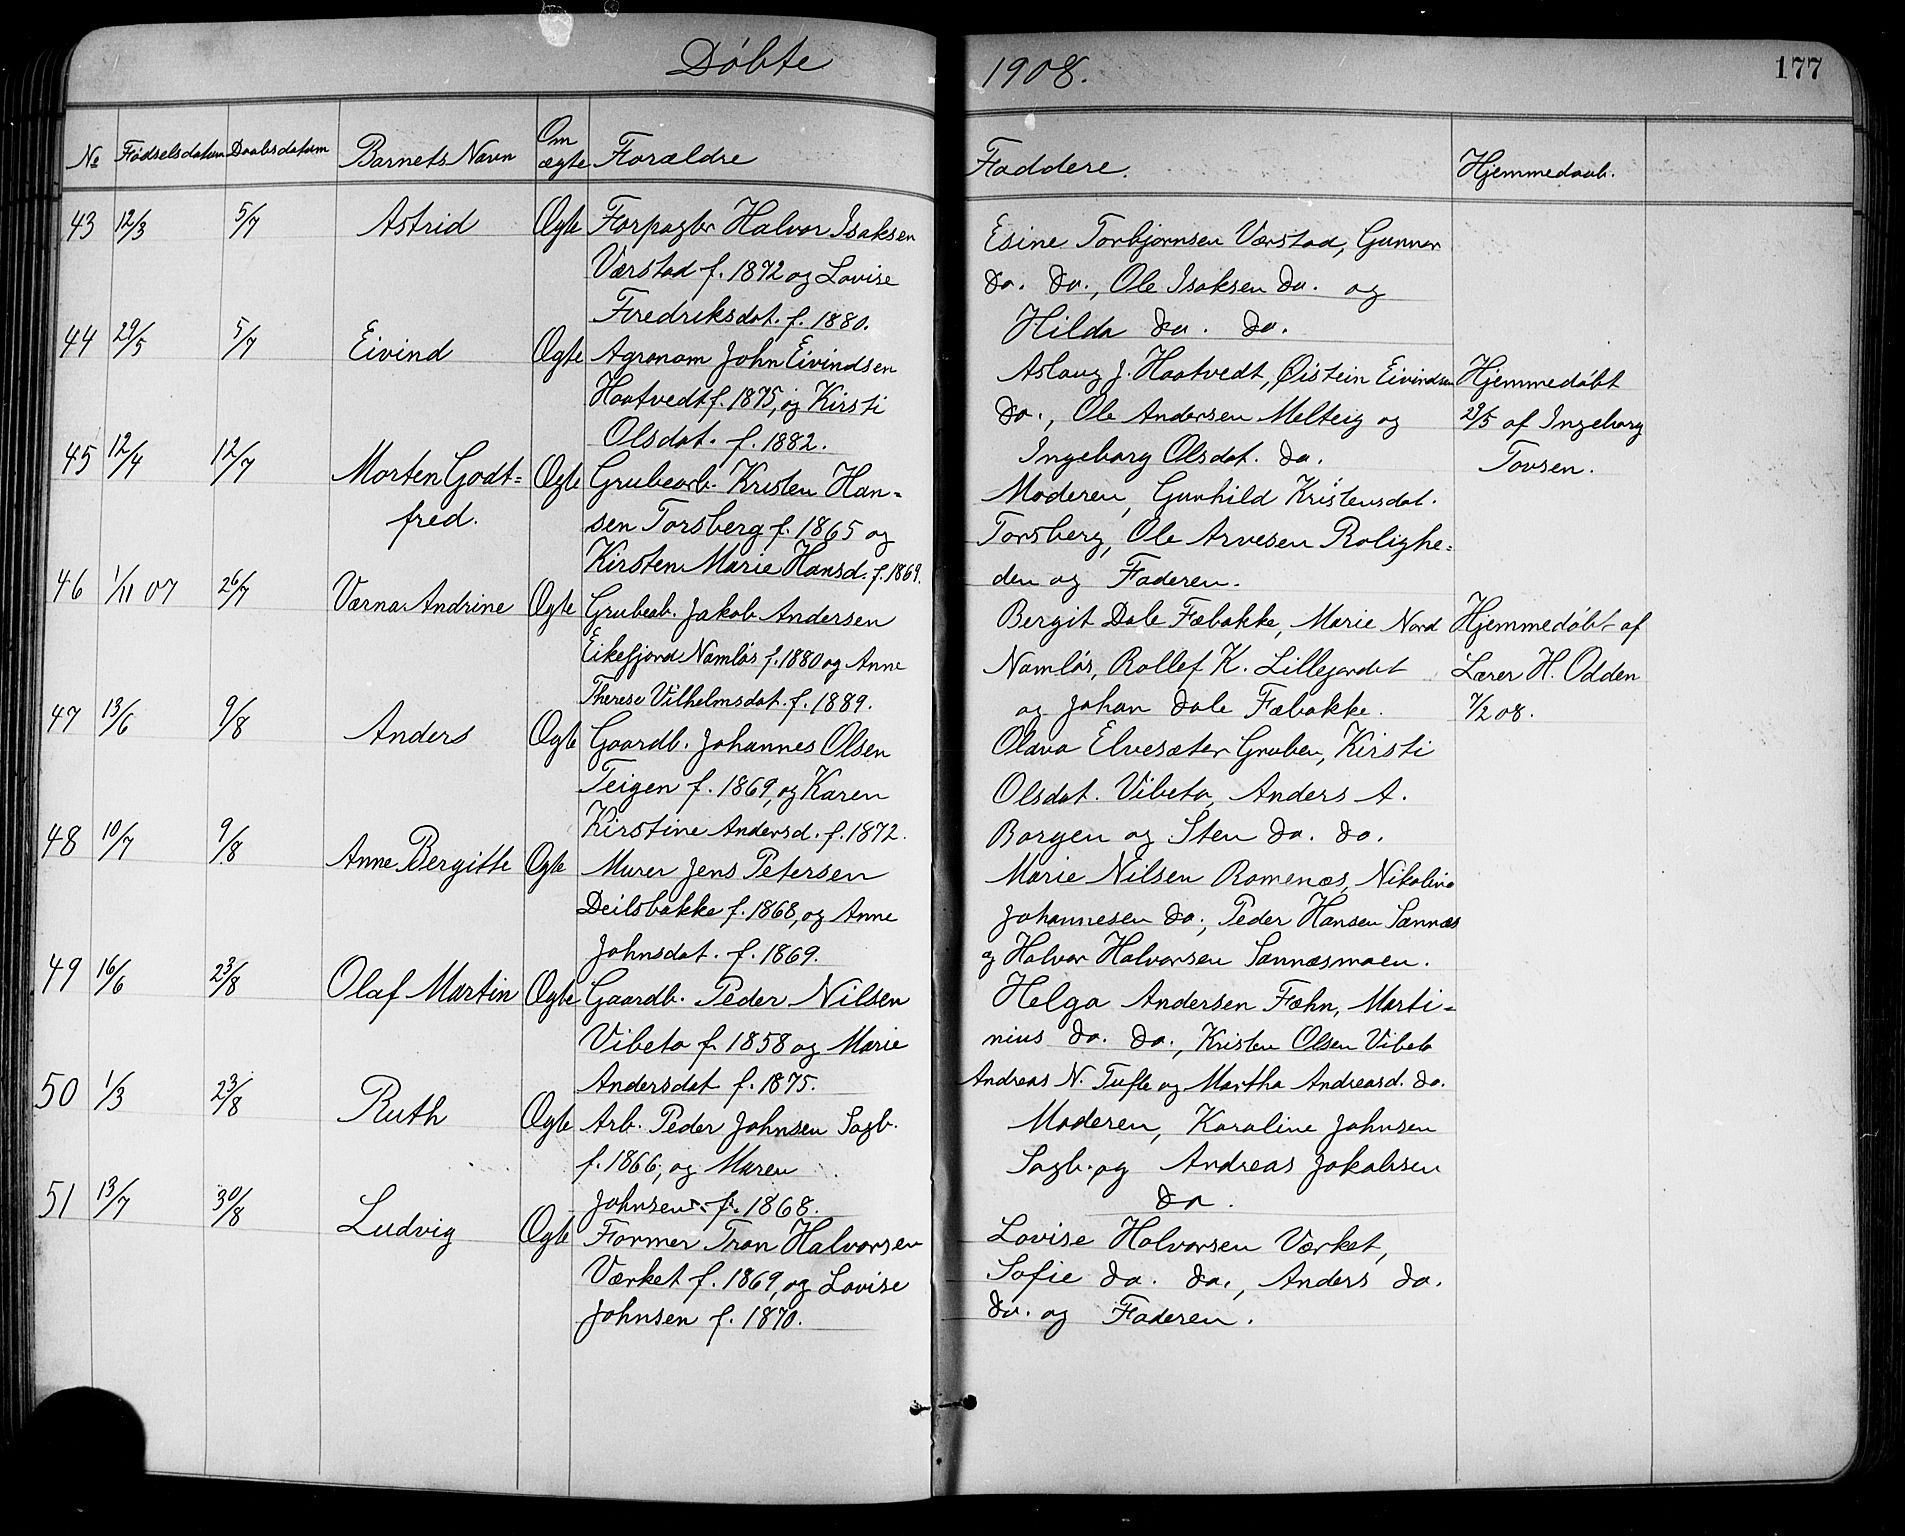 Døbte 1908. 177
№ Fødselsdatum Daabsdatum Barnets Navn Om ægte Forældre Faddere. Hjemmedaab.
43 12/3 5/7 Astrid Ægte Forpagter Halvor Isaksen
Værstad f. 1872 og Lovise
Fredriksdat. f. 1880.
Esine Torbjørnsen Værstad, Gunnar
do. do., Ole Isaksen do. og
Hilda do. do.
44 29/5 5/7 Eivind Ægte Agronom John Eivindsen
Haatvedt f. 1875, og Kirsti
Olsdat. f. 1882.
Aslaug J. Haatvedt, Øistein Eivindsen
do., Ole Andersen Melteig og
Ingeborg Olsdat. do.
Hjemmedøbt
29/5 af Ingeborg
Tovsen.
45 12/4 12/7 Morten Godt=
fred.
Ægte Grubearb. Kristen Han=
sen Torsberg f. 1865 og
Kirsten Marie Hansd. f. 1869.
Moderen, Gunhild Kristensdat.
Torsberg, Ole Arvesen Rolighe=
den og Faderen.
46 1/11 07 26/7 Værna Andrine Ægte Grubeab. Jakob Andersen
Eikefjord Namløs f. 1880 og Anne
Therese Vilhelmsdat. f. 1889.
Bergit Dale Fæbakke, Marie Nord
Namløs, Rollef K. Lillejordet
og Johan Dale Fæbakke.
Hjemmedøbt af
Lærer H. Odden
7/2 08.
47 13/6 9/8 Anders Ægte Gaardb. Johannes Olsen
Teigen f. 1869, og Karen
Kirstine Andersd. f. 1872.
Olava Elvesæter Gruben, Kirsti
Olsdat. Vibeto, Anders A.
Borgen og Sten do. do.
48 10/7 9/8 Anne Bergitte Ægte Murer Jens Petersen
Deilsbakke f. 1868, og Anne
Johnsdat. f. 1869.
Marie Nilsen Romenæs, Nikoline
Johannesen do., Peder Hansen Sannæs
og Halvor Halvorsen Sannæsmoen.
49 16/6 23/8 Olaf Martin Ægte Gaardb. Peder Nilsen
Vibeto f. 1858 og Marie
Andersdat f. 1875.
Helga Andersen Fæhn, Marti=
nius do. do., Kristen Olsen Vibeto
Andreas N. Tufte og Martha Andreasd. do.
50 1/3 23/8 Ruth Ægte Arb. Peder Johnsen Sagb.
f. 1866, og Maren
Johnsen f. 1868.
Moderen, Karoline Johnsen
Sagb. og Andreas Jakobsen
do.
51 13/7 30/8 Ludvig Ægte Former Tron Halvorsen
Værket f. 1869, og Lovise
Johnsen f. 1870.
Lovise Halvorsen Værket,
Sofie do. do., Anders do.
do. og Faderen.